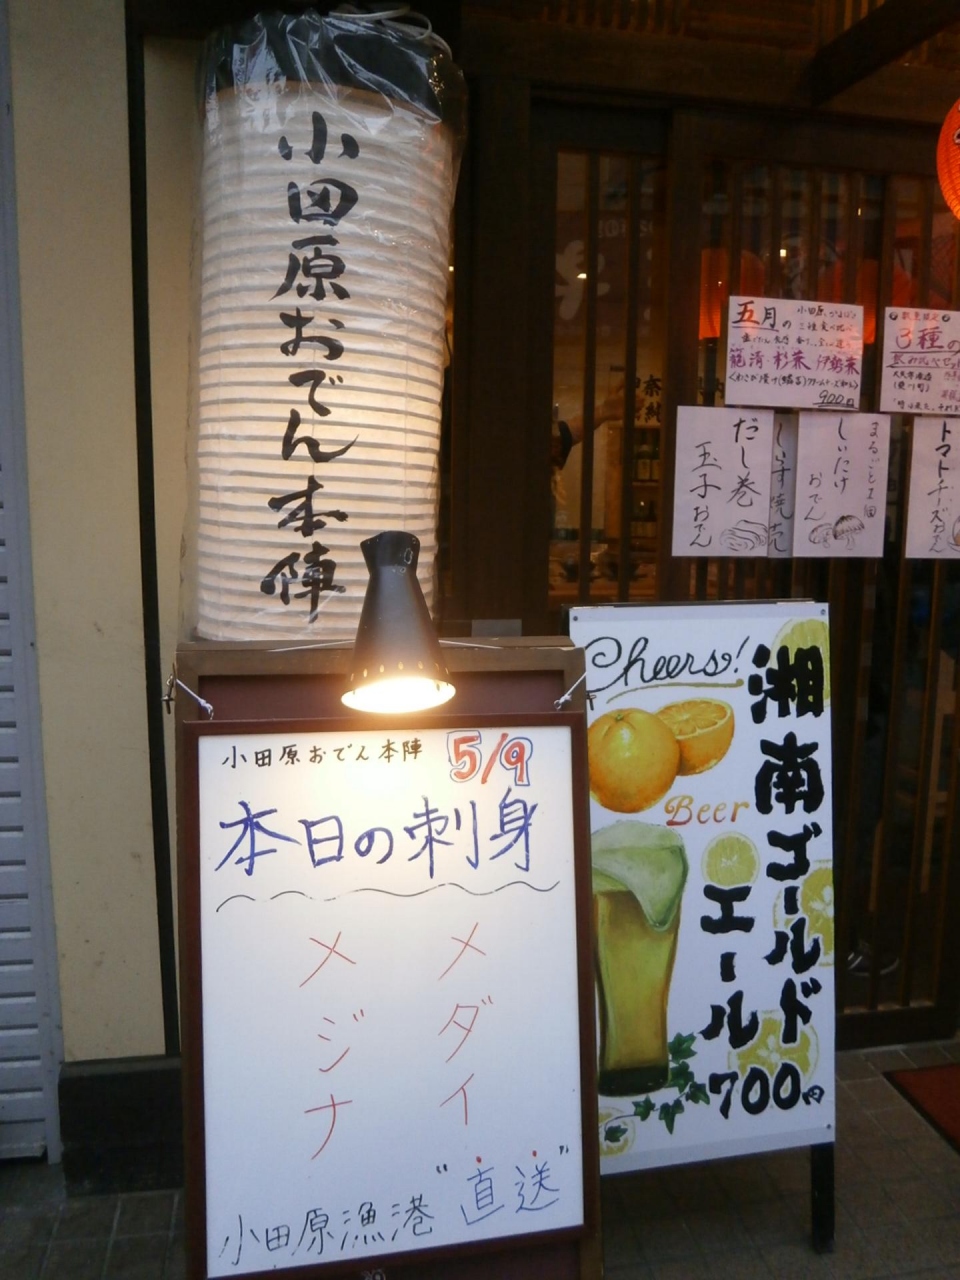 小田原おでん本陣
小田原おでん本陣 5/9
本日の刺身
メダイ
メジナ
小田原漁港 "直送"
Cheers!
Beer
湘南ゴールド
エール
700円
五月の
籠清・杉兼・伊勢兼
900円
3種の
だし巻
玉子おでん
しらす焼売
まるごと1個
しいたけ
おでん
トマトチーズおでん